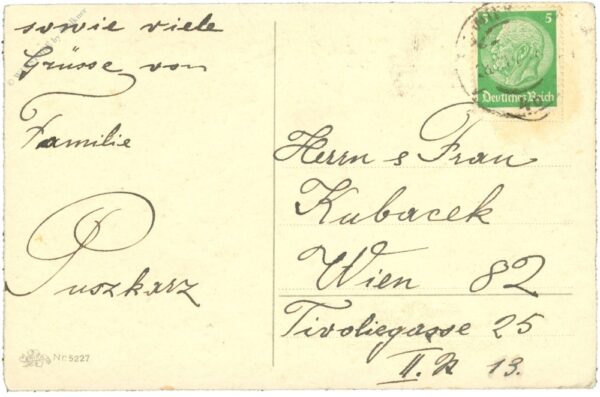 sowie viele
Grüsse von
Familie
Puszkarz
Nr. 5227
5
Deutsches Reich
Herrn s Frau
Kubacek
Wien 82
Tivoliegasse 25
II. R 13.